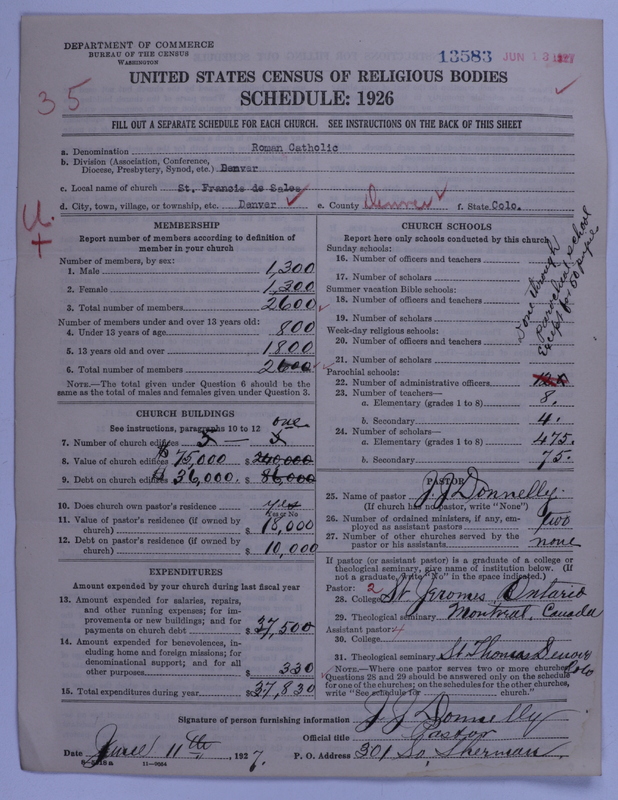 DEPARTMENT OF COMMERCE
BUREAU OF THE CENSUS
WASHINGTON
13583 JUN 13 1927
UNITED STATES CENSUS OF RELIGIOUS BODIES
SCHEDULE: 1926
35
FILL OUT A SEPARATE SCHEDULE FOR EACH CHURCH. SEE INSTRUCTIONS ON THE BACK OF THIS SHEET
a. Denomination Roman Catholic
b. Division (Association, Conference,
Diocese, Presbytery, Synod, etc.) Denver
c. Local name of church St. Francis de Sales
d. City, town, village, or township, etc. Denver e. County Denver f. State Colo.
U.
MEMBERSHIP
Report number of members according to definition of
member in your church
Number of members, by sex:
1. Male 1,300
2. Female 1,300
3. Total number of members 2600
Number of members under and over 13 years old:
4. Under 13 years of age 800
5. 13 years old and over 1800
6. Total number of members 2600
NOTE.—The total given under Question 6 should be the
same as the total of males and females given under Question 3.
CHURCH BUILDINGS
See instructions, paragraphs 10 to 12 one
7. Number of church edifices
8. Value of church edifices $75,000 $240,000
9. Debt on church edifices $36,000. $86,000
10. Does church own pastor's residence? yes
Yes or No
11. Value of pastor's residence (if owned by
church) $ 18,000
12. Debt on pastor's residence (if owned by
church) $ 10,000
EXPENDITURES
Amount expended by your church during last fiscal year
13. Amount expended for salaries, repairs,
and other running expenses; for im-
provements or new buildings; and for
payments on church debt $37,500
14. Amount expended for benevolences, in-
cluding home and foreign missions; for
denominational support; and for all
other purposes $ 330
15. Total expenditures during year $37,830
CHURCH SCHOOLS
Report here only schools conducted by this church
Sunday schools:
16. Number of officers and teachers
17. Number of scholars
Summer vacation Bible schools:
18. Number of officers and teachers
19. Number of scholars
Week-day religious schools:
20. Number of officers and teachers
21. Number of scholars
Done through
Parochial school
Except for 60 pupils
Parochial schools:
22. Number of administrative officers
23. Number of teachers—
a. Elementary (grades 1 to 8) 8.
b. Secondary 4.
24. Number of scholars—
a. Elementary (grades 1 to 8) 475.
b. Secondary 75.
PASTOR
25. Name of pastor J. J. Donnelly.
(If church has no pastor, write "None")
26. Number of ordained ministers, if any, em-
ployed as assistant pastors two
27. Number of other churches served by the
pastor or his assistants none
If pastor (or assistant pastor) is a graduate of a college or
theological seminary, give name of institution below. (If
not a graduate, write "No" in the space indicated.)
Pastor: 2
28. College St Jeromes Ontario
29. Theological seminary Montreal, Canada
Assistant pastor:
30. College
31. Theological seminary St Thomas Denver
Colo
NOTE.—Where one pastor serves two or more churches,
Questions 28 and 29 should be answered only on the schedule
for one of the churches; on the schedules for the other churches,
write "See schedule for church."
Signature of person furnishing information J J Donnelly
Official title Pastor
Date June 11th, 1927. P. O. Address 301 So. Sherman
11—9064